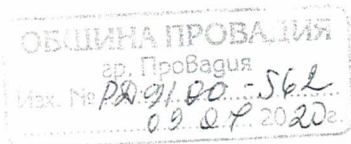 ОБЩИНА ПРОВАДИЯ
гр. Провадия
Изх. № РД 91 00 - 562
09 07 2020г.